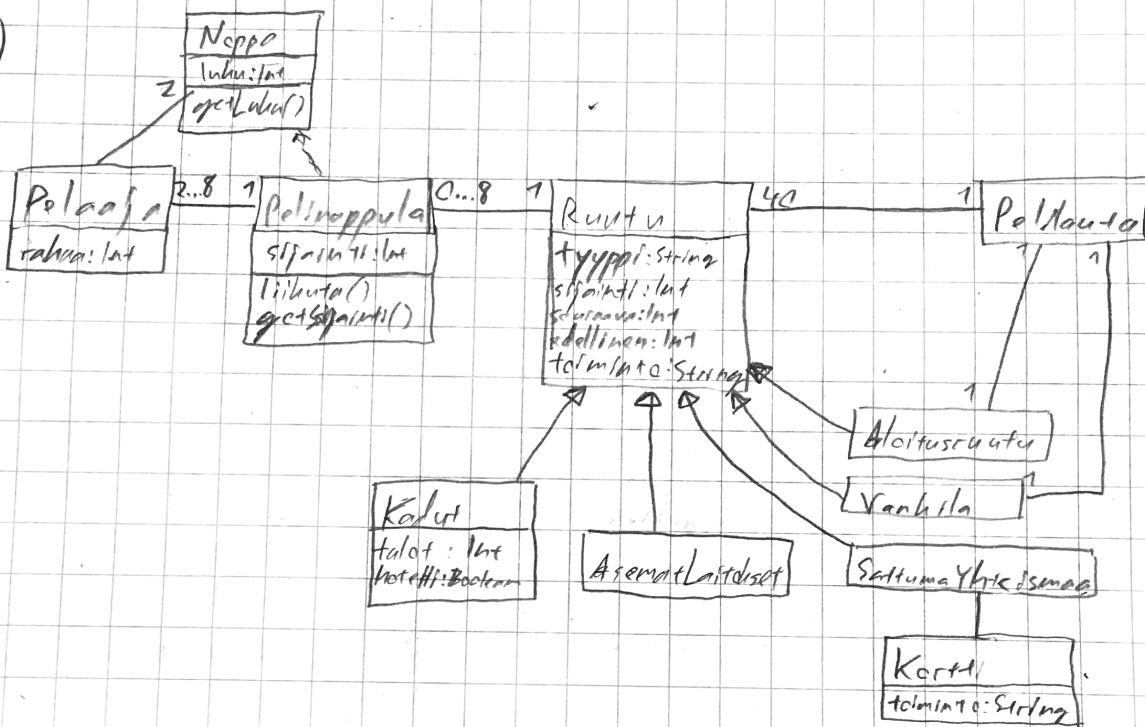 )
Noppa
luku:Int
getLuku()
2
Pelaaja
rahaa:Int
2...8
1
Pelinappula
sijainti:Int
liikuta()
getSijainti()
0...8
1
Ruutu
tyyppi:String
sijainti:Int
seuraava:Int
edellinen:Int
toiminto:String
40
1
Pelilauta
1
1
1
Aloitusruutu
1
Vankila
Kadut
talot : Int
hotelli:Boolean
AsematLaitokset
SattumaYhteismaa
Kortti
toiminto:String